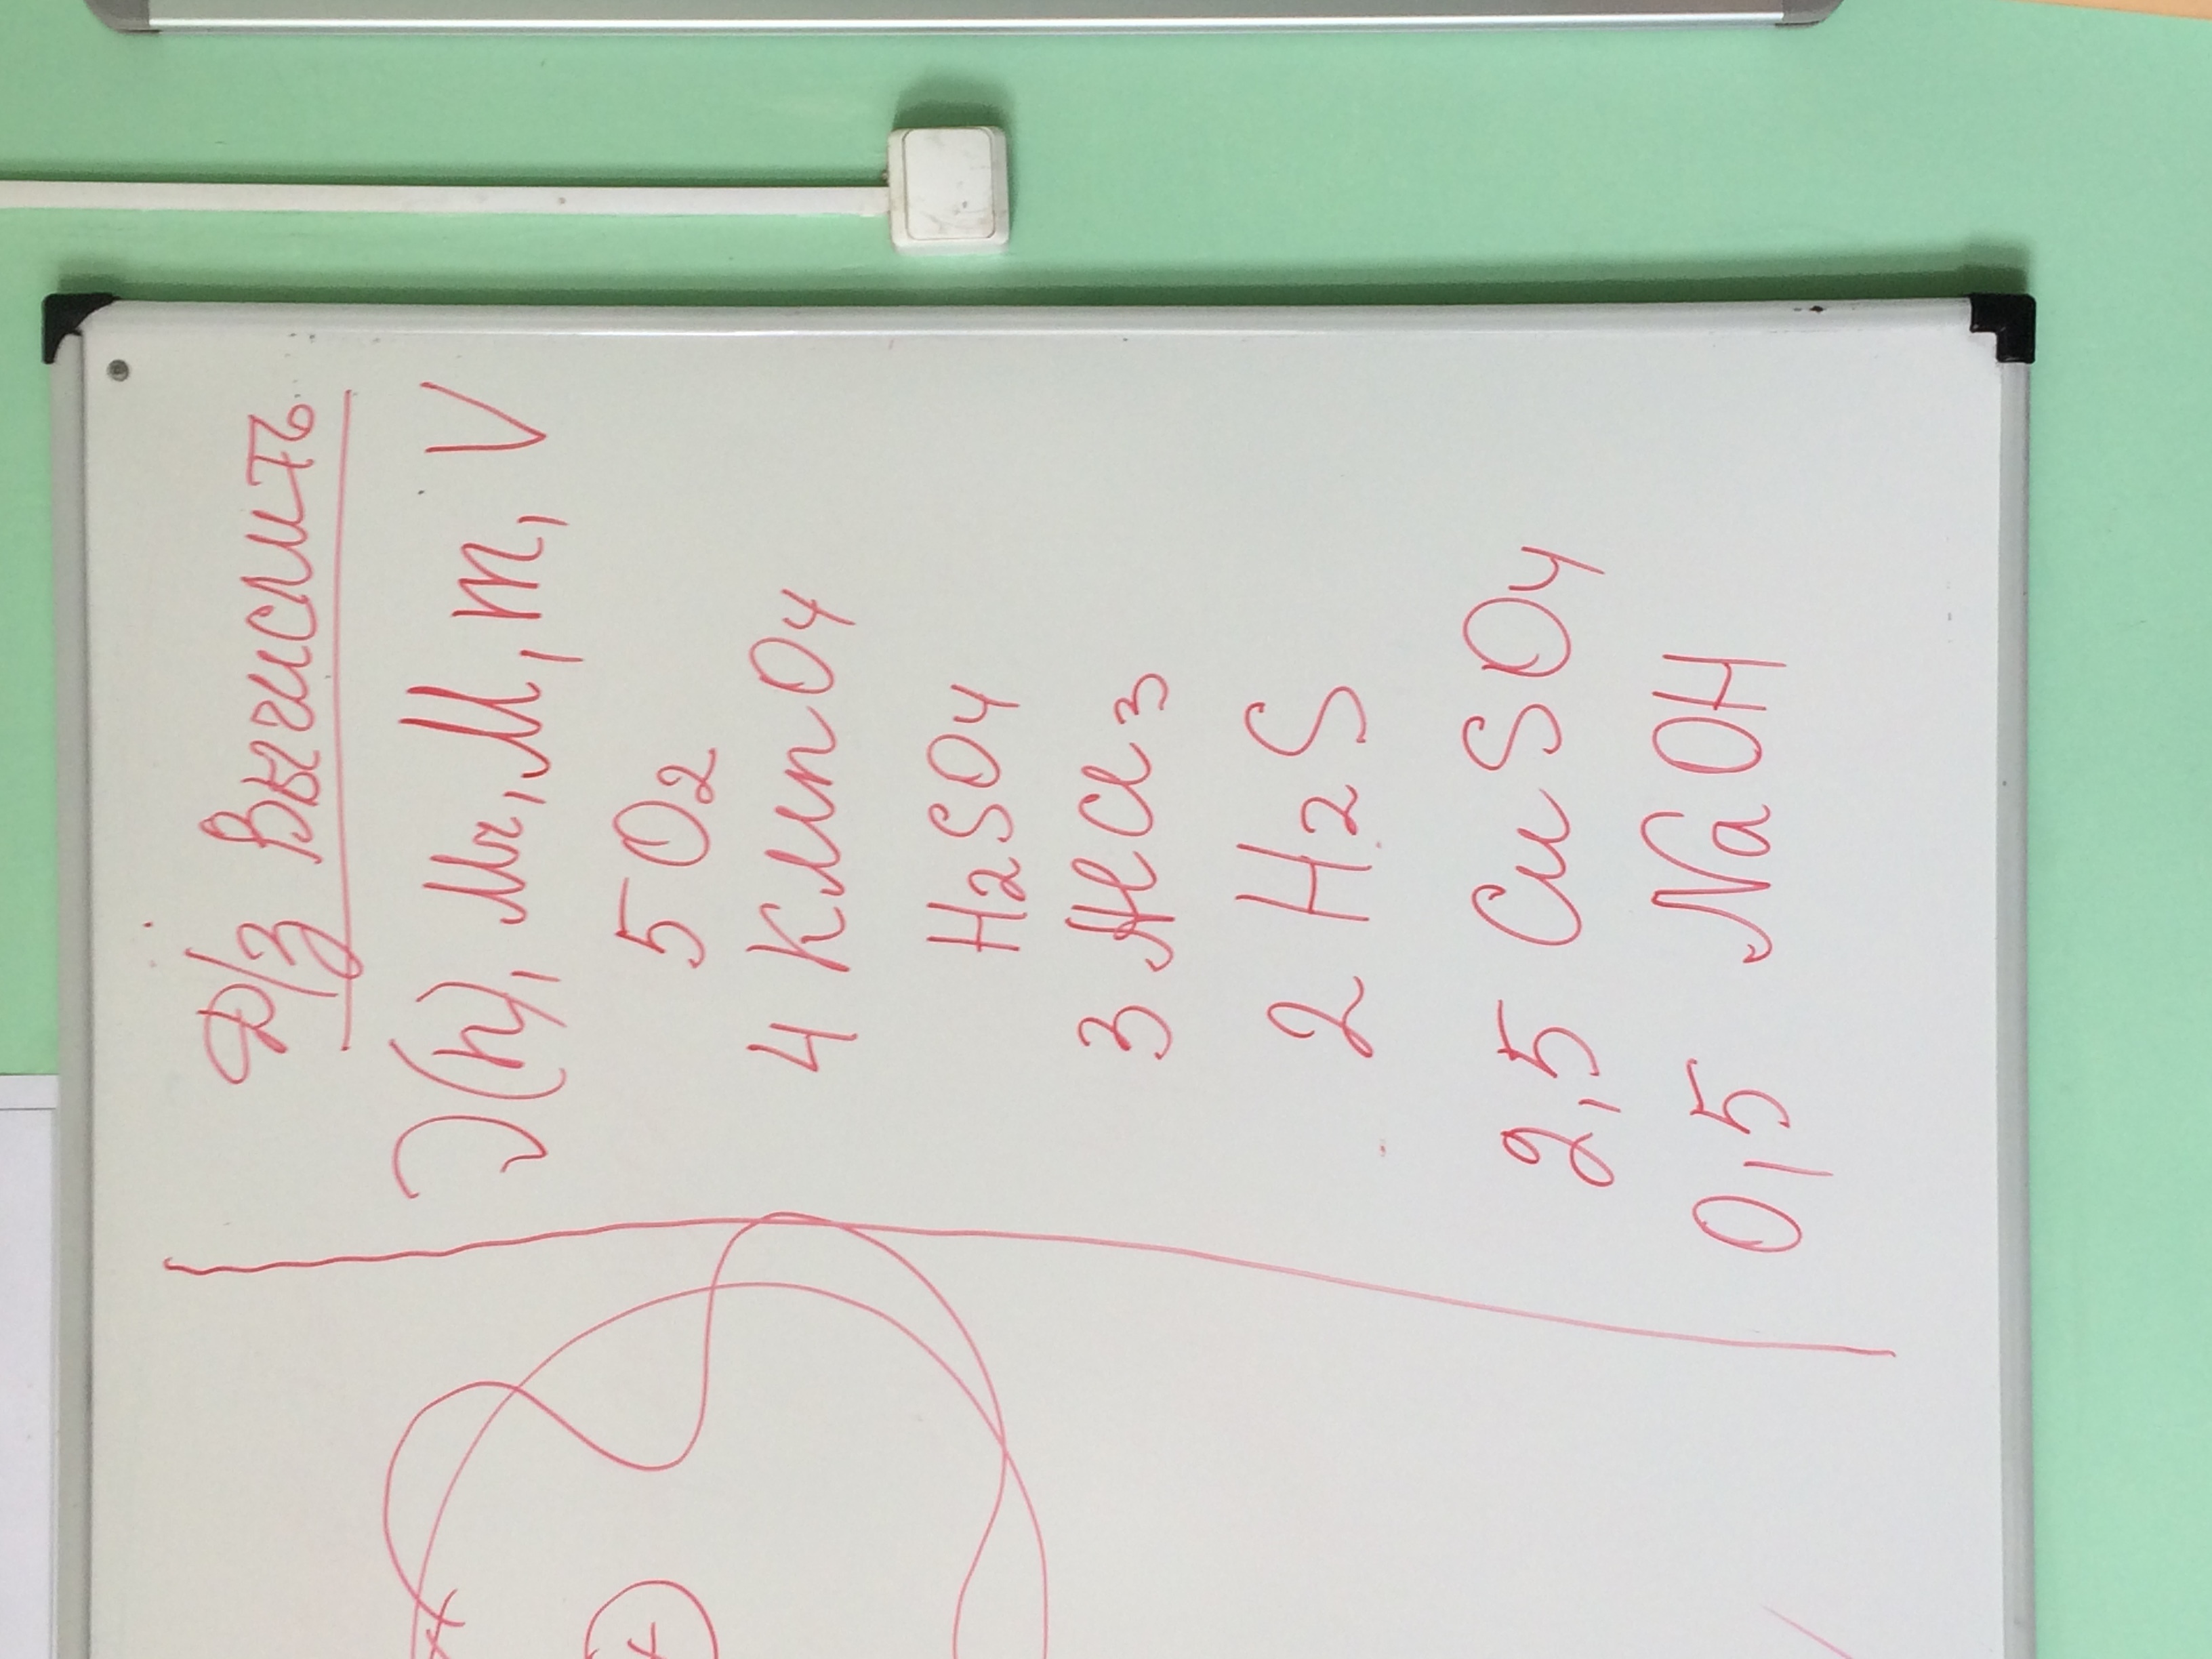 Д/з Вычислить
ν(n), Mr, M, m, V
5 O2
4 KMnO4
H2SO4
3 AlCl3
2 H2S
2,5 CuSO4
0,5 NaOH